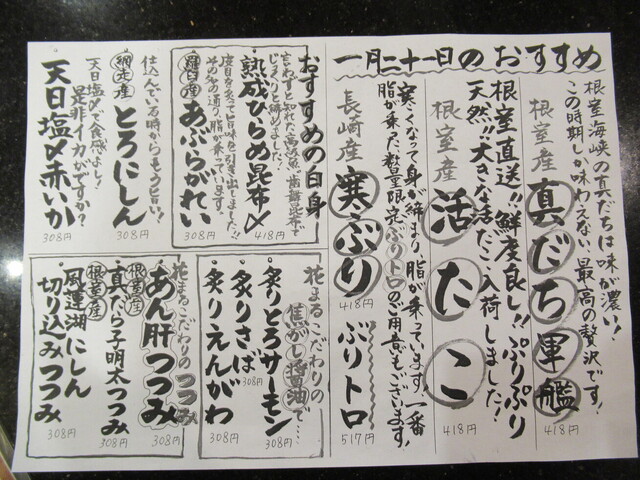 一月二十一日のおすすめ
根室海峡の真だちは味が濃い!
この時期しか味わえない、最高の贅沢です!
根室産 真だち軍艦
418円
根室直送!!鮮度良し!!ぷりぷり
天然!!大きな活たこ入荷しました!
根室産 活たこ
418円
寒くなって身が締まり脂が乗っています!一番
脂が乗った数量限定ぶりトロのご用意もございます!
長崎産 寒ぶり
418円
ぶりトロ
517円
おすすめの白身
言わずと知れた高級魚。歯舞昆布で
じっくりと締めました。
熟成ひらめ昆布〆
418円
度目を炙って旨味を引き出しました!!
その名の通り、脂が乗っています。
羅臼産 あぶらがれい
308円
仕込んでいる時からもうウマい!
網走産 とろにしん
308円
天日塩〆で食感よし!
是非イカがですか?
天日塩〆赤いか
308円
花まるこだわりの
焦がし醤油で…
炙りとろサーモン
308円
炙りさば
308円
炙りえんがわ
308円
花まるこだわりのつつみ
根室産 あん肝つつみ
308円
根室産 真だら子明太つつみ
308円
風蓮湖にしん
切り込みつつみ
308円